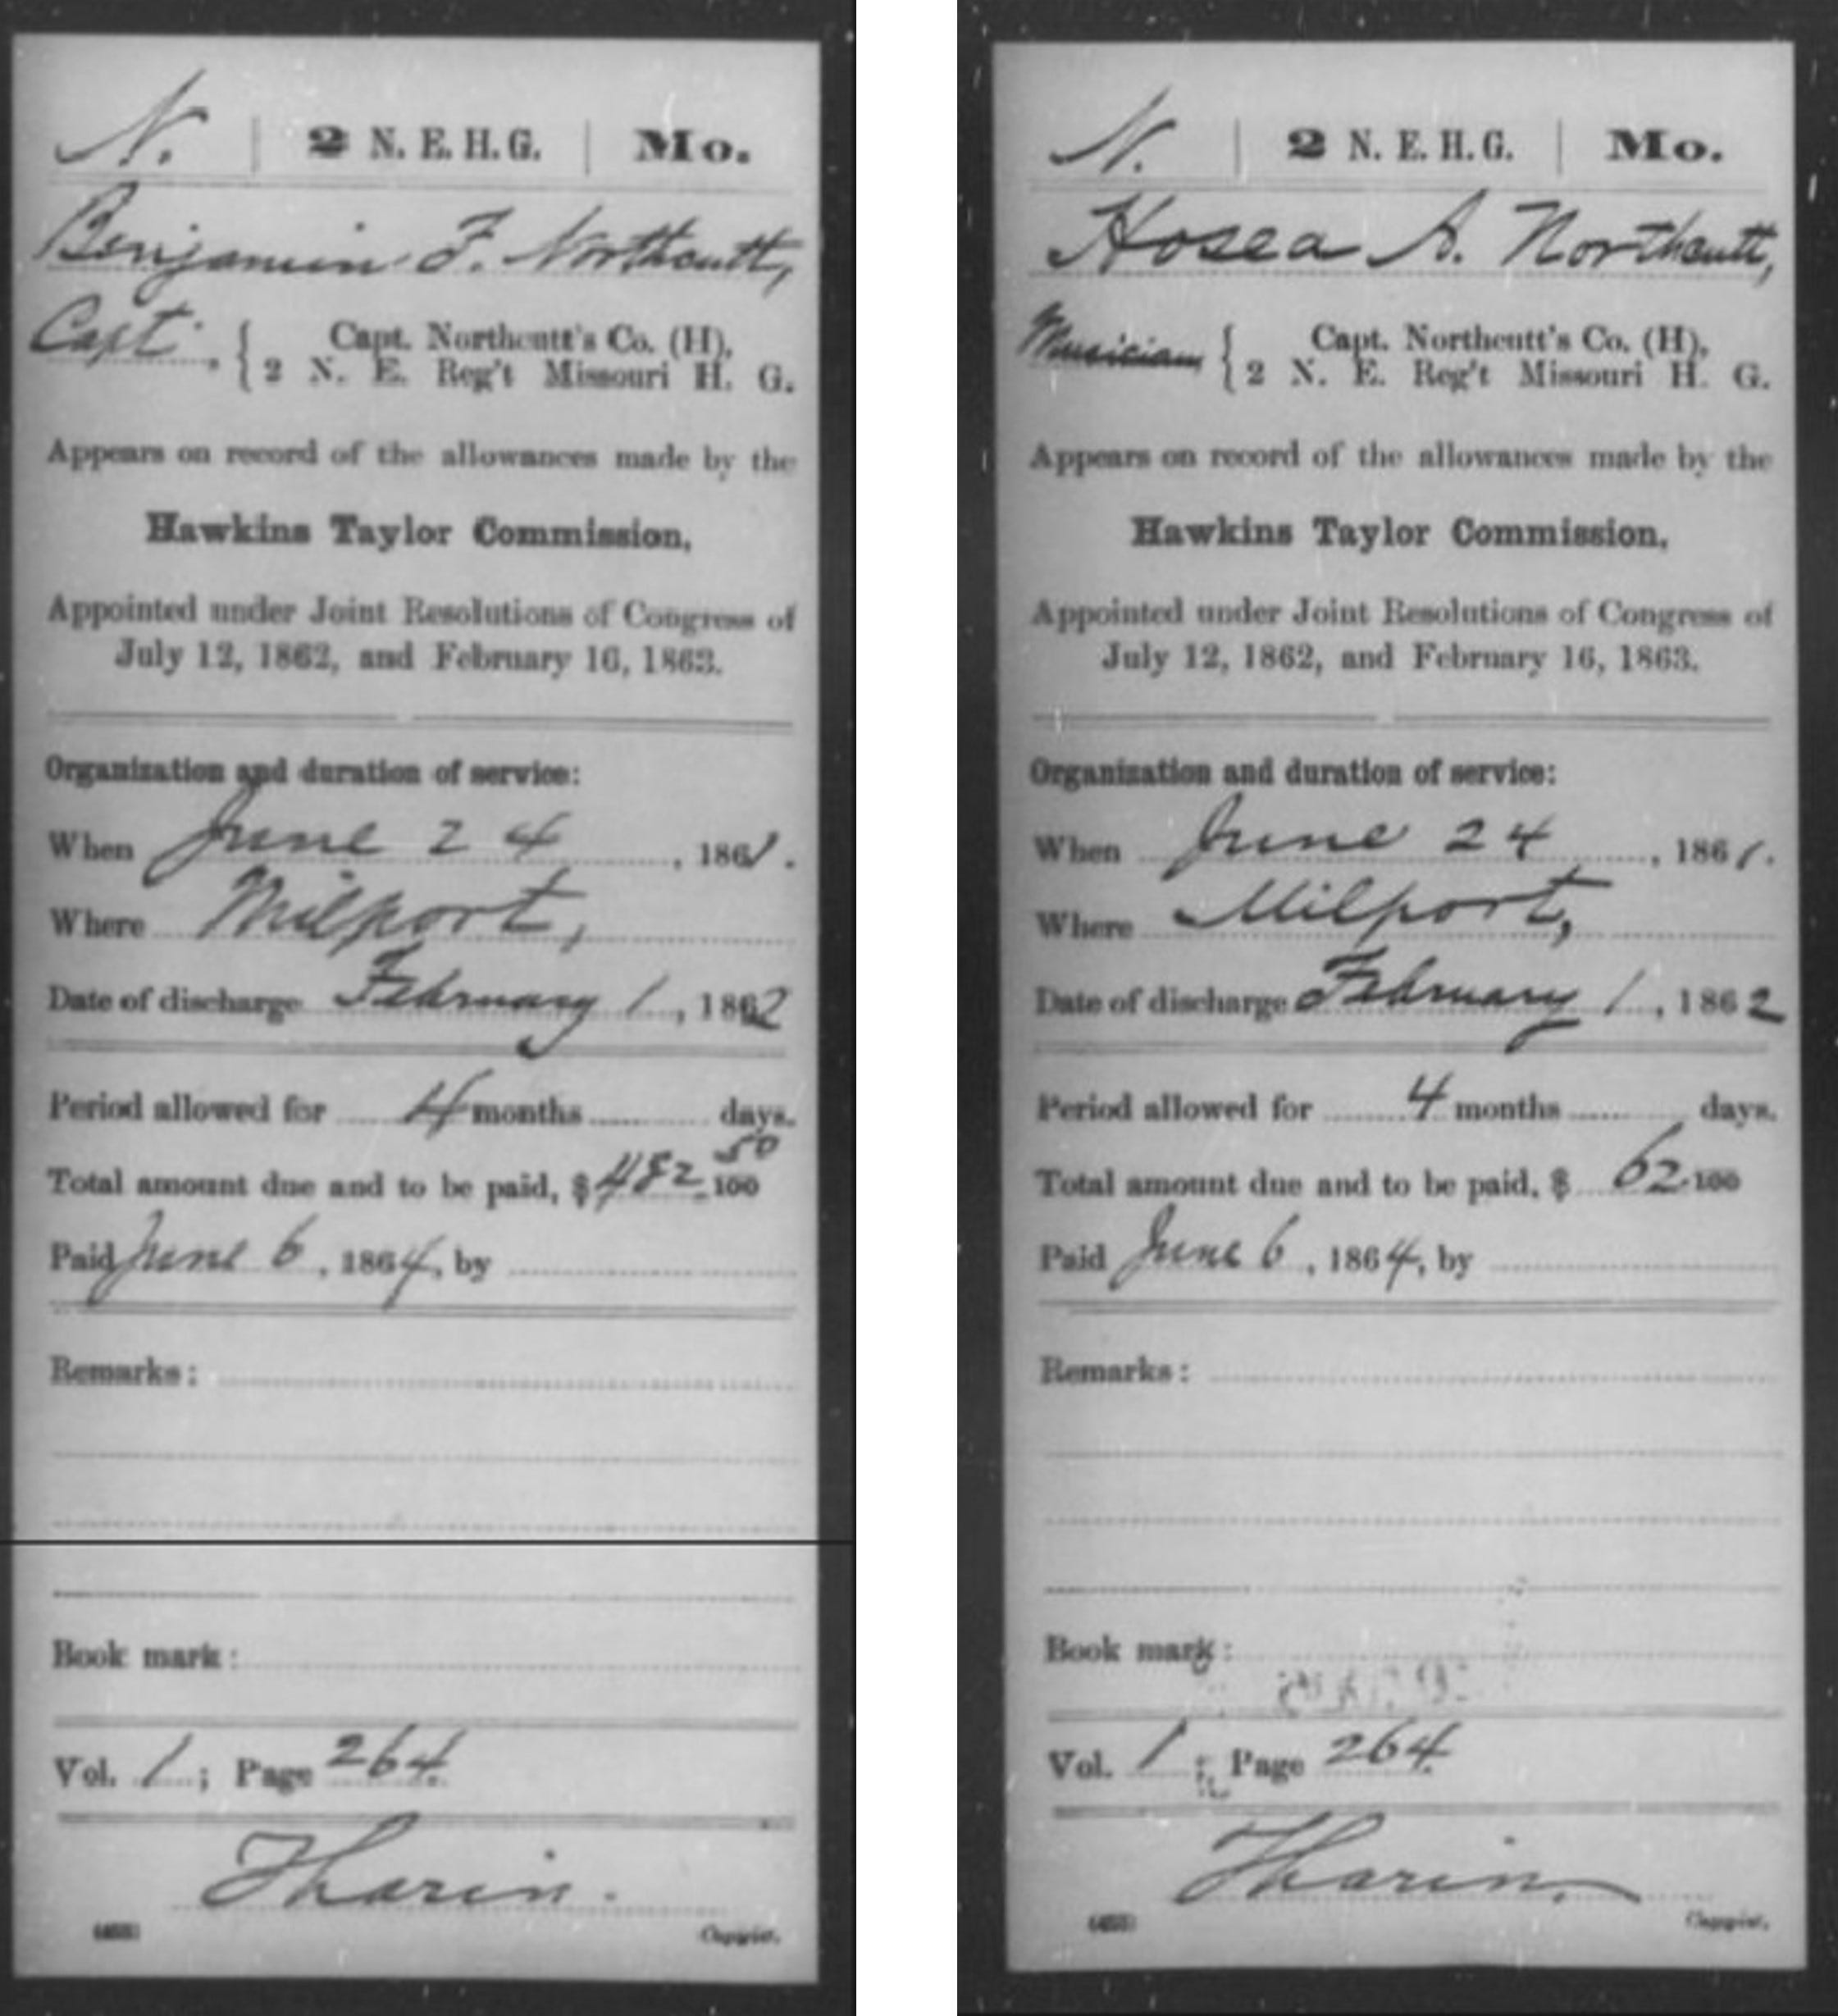 N. | 2 N. E. H. G. | Mo.
Benjamin F. Northcutt,
Capt. , { Capt. Northcutt's Co. (H),
2 N. E. Reg't Missouri H. G.
Appears on record of the allowances made by the
Hawkins Taylor Commission,
Appointed under Joint Resolutions of Congress of
July 12, 1862, and February 16, 1863.
Organization and duration of service:
When June 24, 1861.
Where Milport,
Date of discharge February 1, 1862
Period allowed for 4 months days.
Total amount due and to be paid, $ 482 50/100
Paid June 6, 1864, by
Remarks:
Book mark:
Vol. 1; Page 264.
Tharin.
Copyist.
N. | 2 N. E. H. G. | Mo.
Hosea A. Northcutt,
Musician { Capt. Northcutt's Co. (H),
2 N. E. Reg't Missouri H. G.
Appears on record of the allowances made by the
Hawkins Taylor Commission,
Appointed under Joint Resolutions of Congress of
July 12, 1862, and February 16, 1863.
Organization and duration of service:
When June 24, 1861.
Where Milport,
Date of discharge February 1, 1862
Period allowed for 4 months days.
Total amount due and to be paid, $ 62 100
Paid June 6, 1864, by
Remarks:
Book mark:
Vol. 1; Page 264.
Tharin.
Copyist.